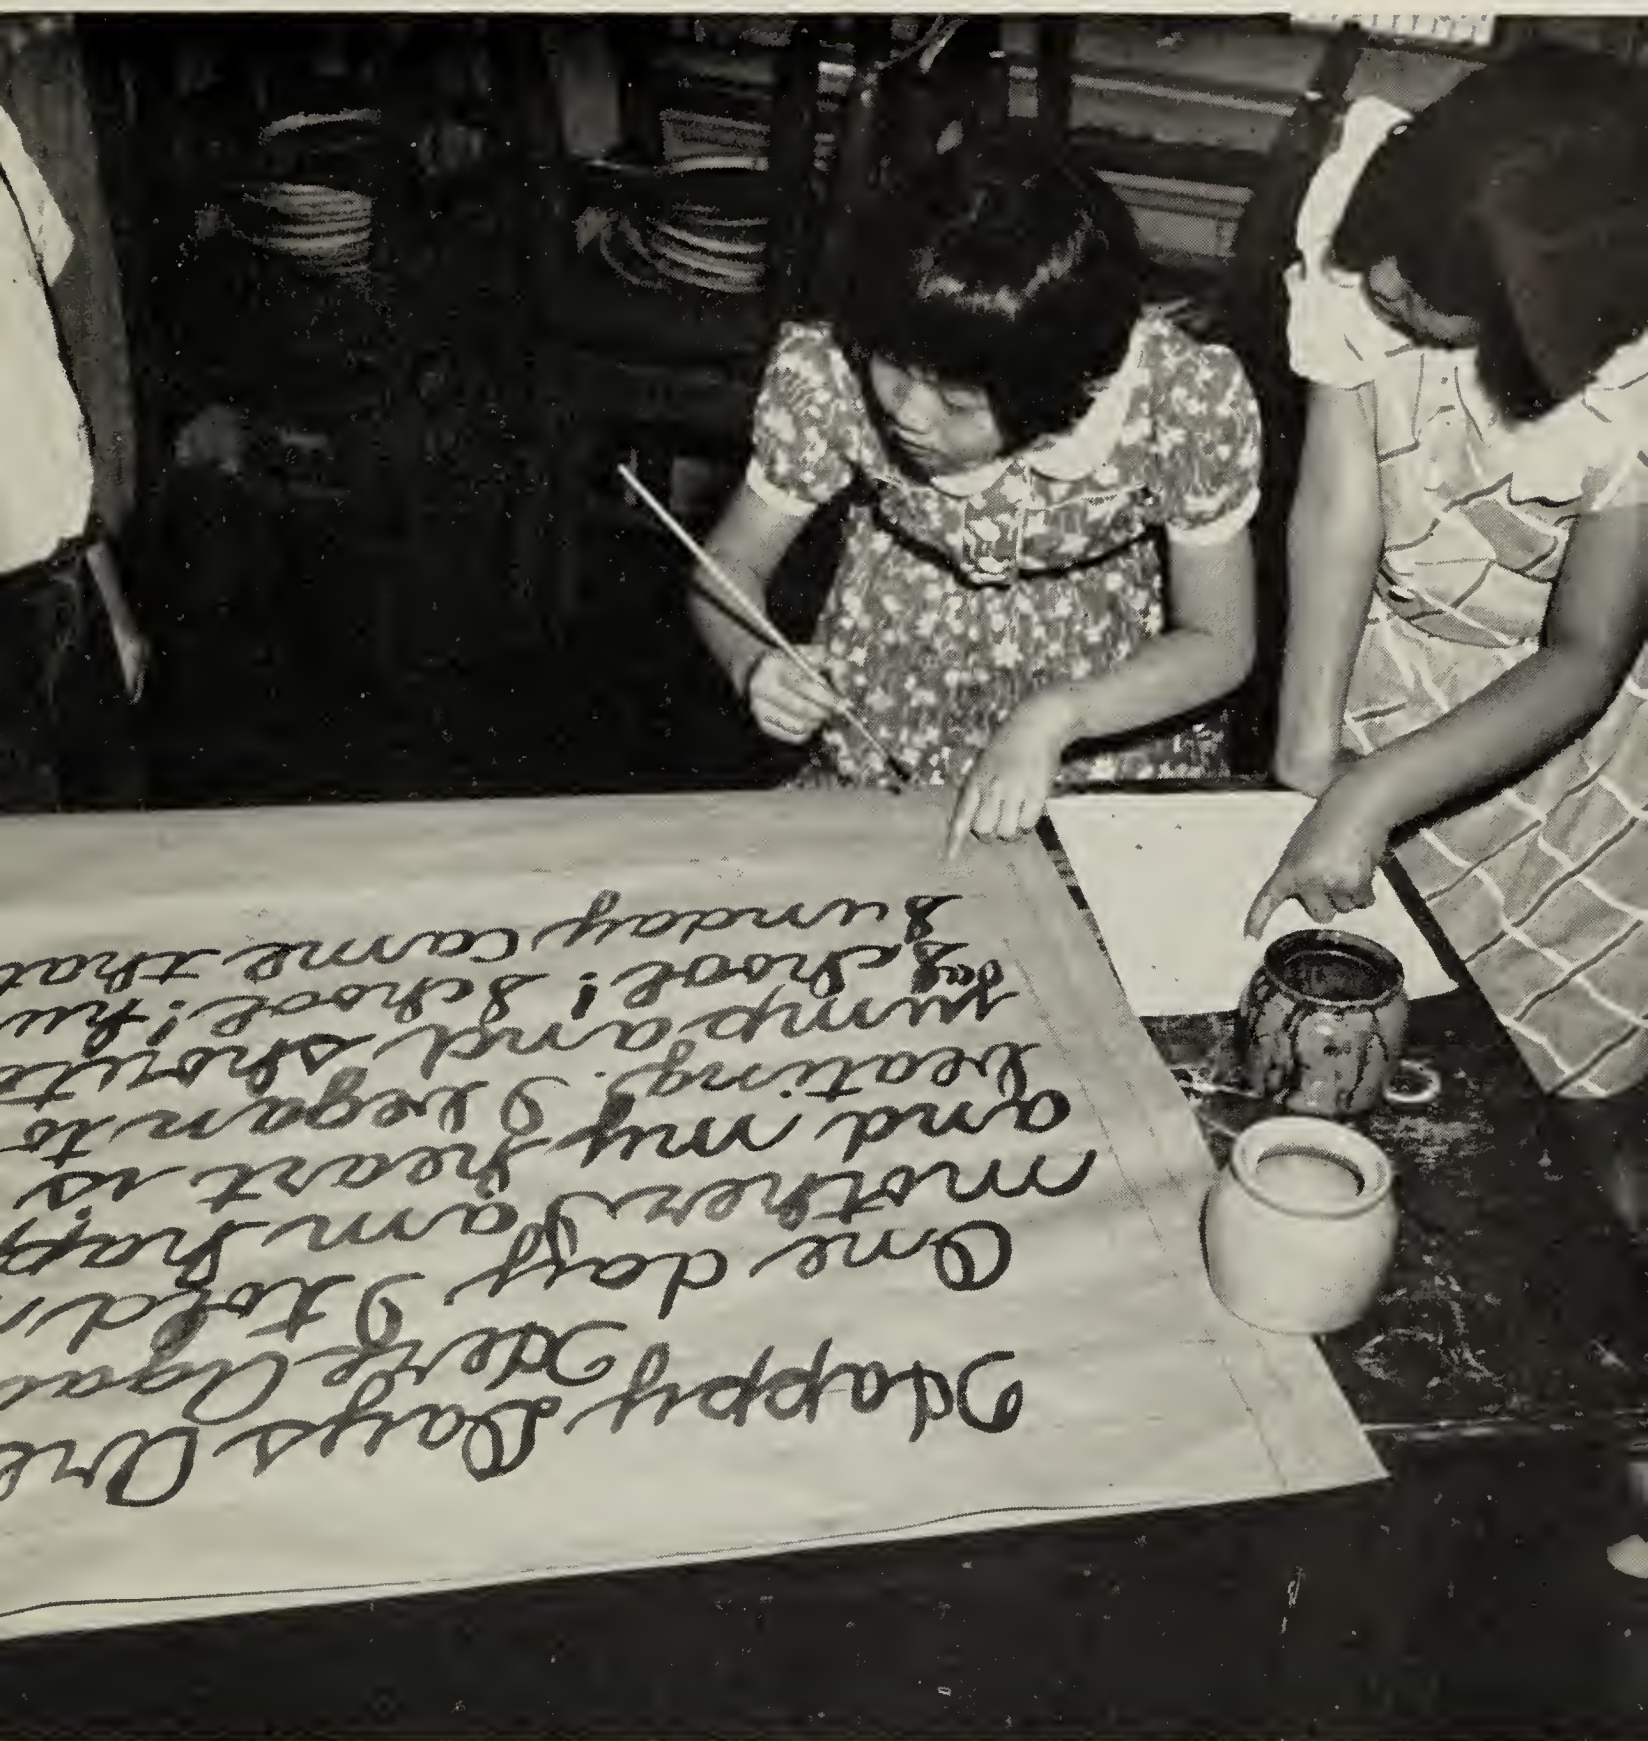 Happy Days Are
Here Agai
One day I told m
mother I am happ
and my heart is
beating. I began to
jump and shout
School! School! hu
Sunday came that